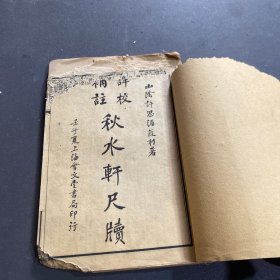 山陰許思湄葭村著
詳校
補註
秋水軒尺牘
壬子夏上海會文堂書局印行